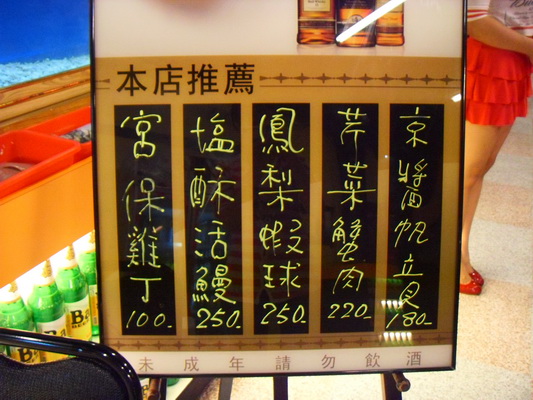 本店推薦
京醬帆立貝
180-
芹菜蟹肉
220-
鳳梨蝦球
250-
塩酥活鰻
250-
宮保雞丁
100-
未成年請勿飲酒